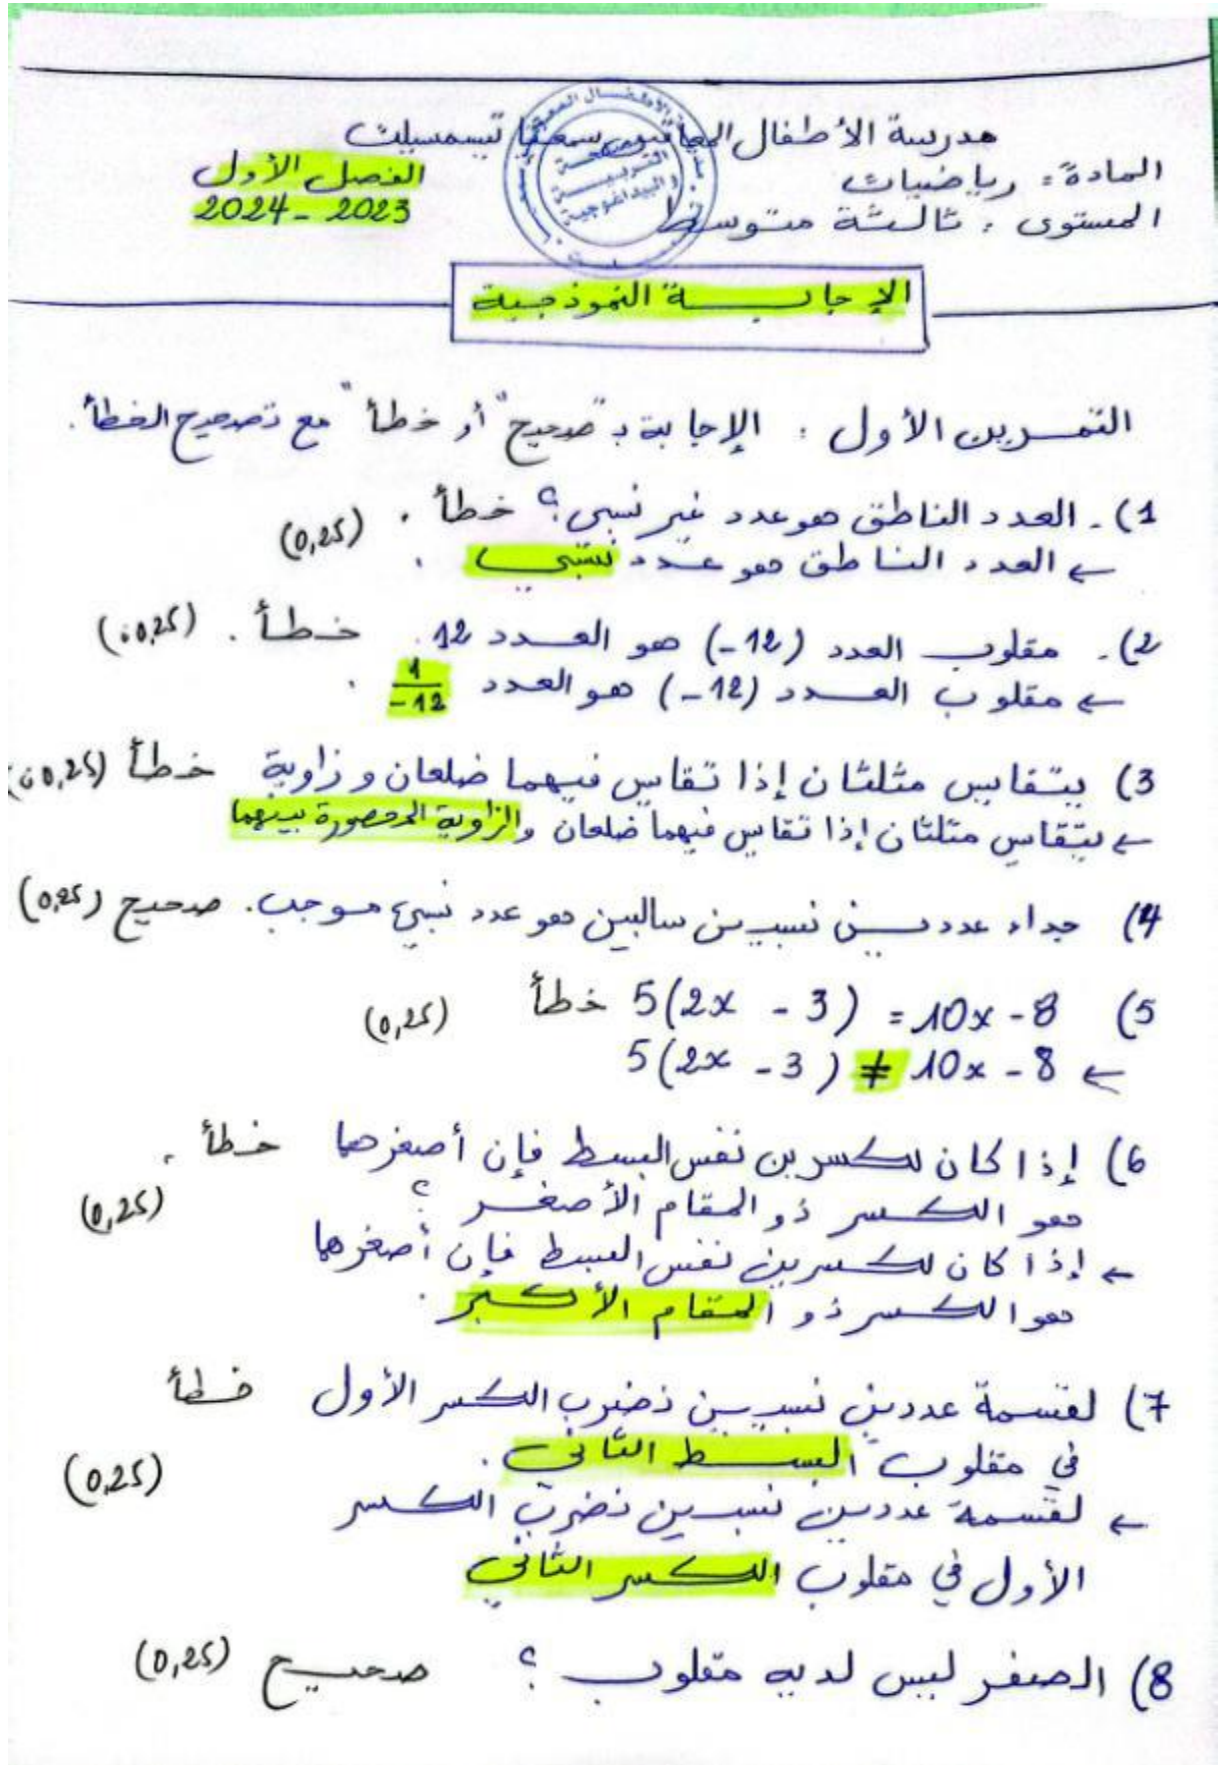 مدرسة الأطفال المعاقين سمعيا تيسمسيلت
المادة: رياضيات
الفصل الأول
المستوى: ثالثة متوسط
2023 - 2024
الإجابة النموذجية
التمرين الأول: الإجابة بـ "صحيح" أو "خطأ" مع تصحيح الخطأ.
1) - العدد الناطق هو عدد غير نسبي؟ خطأ. (0,25)
← العدد الناطق هو عدد نسبي.
2) - مقلوب العدد (-12) هو العدد 12. خطأ. (0,25)
← مقلوب العدد (-12) هو العدد 1/-12.
3) يتقايس مثلثان إذا تقايس فيهما ضلعان و زاوية خطأ (0,25)
← يتقايس مثلثان إذا تقايس فيهما ضلعان والزاوية المحصورة بينهما
4) جداء عددين نسبيين سالبين هو عدد نسبي موجب. صحيح (0,25)
5) 5(2x - 3) = 10x - 8 خطأ (0,25)
← 5(2x - 3) ≠ 10x - 8
6) إذا كان لكسرين نفس البسط فإن أصغرهما خطأ.
هو الكسر ذو المقام الأصغر؟ (0,25)
← إذا كان لكسرين نفس البسط فإن أصغرهما
هو الكسر ذو المقام الأكبر.
7) لقسمة عددين نسبيين نضرب الكسر الأول خطأ
في مقلوب البسط الثاني. (0,25)
← لقسمة عددين نسبيين نضرب الكسر
الأول في مقلوب الكسر الثاني
8) الصفر ليس لديه مقلوب؟ صحيح (0,25)